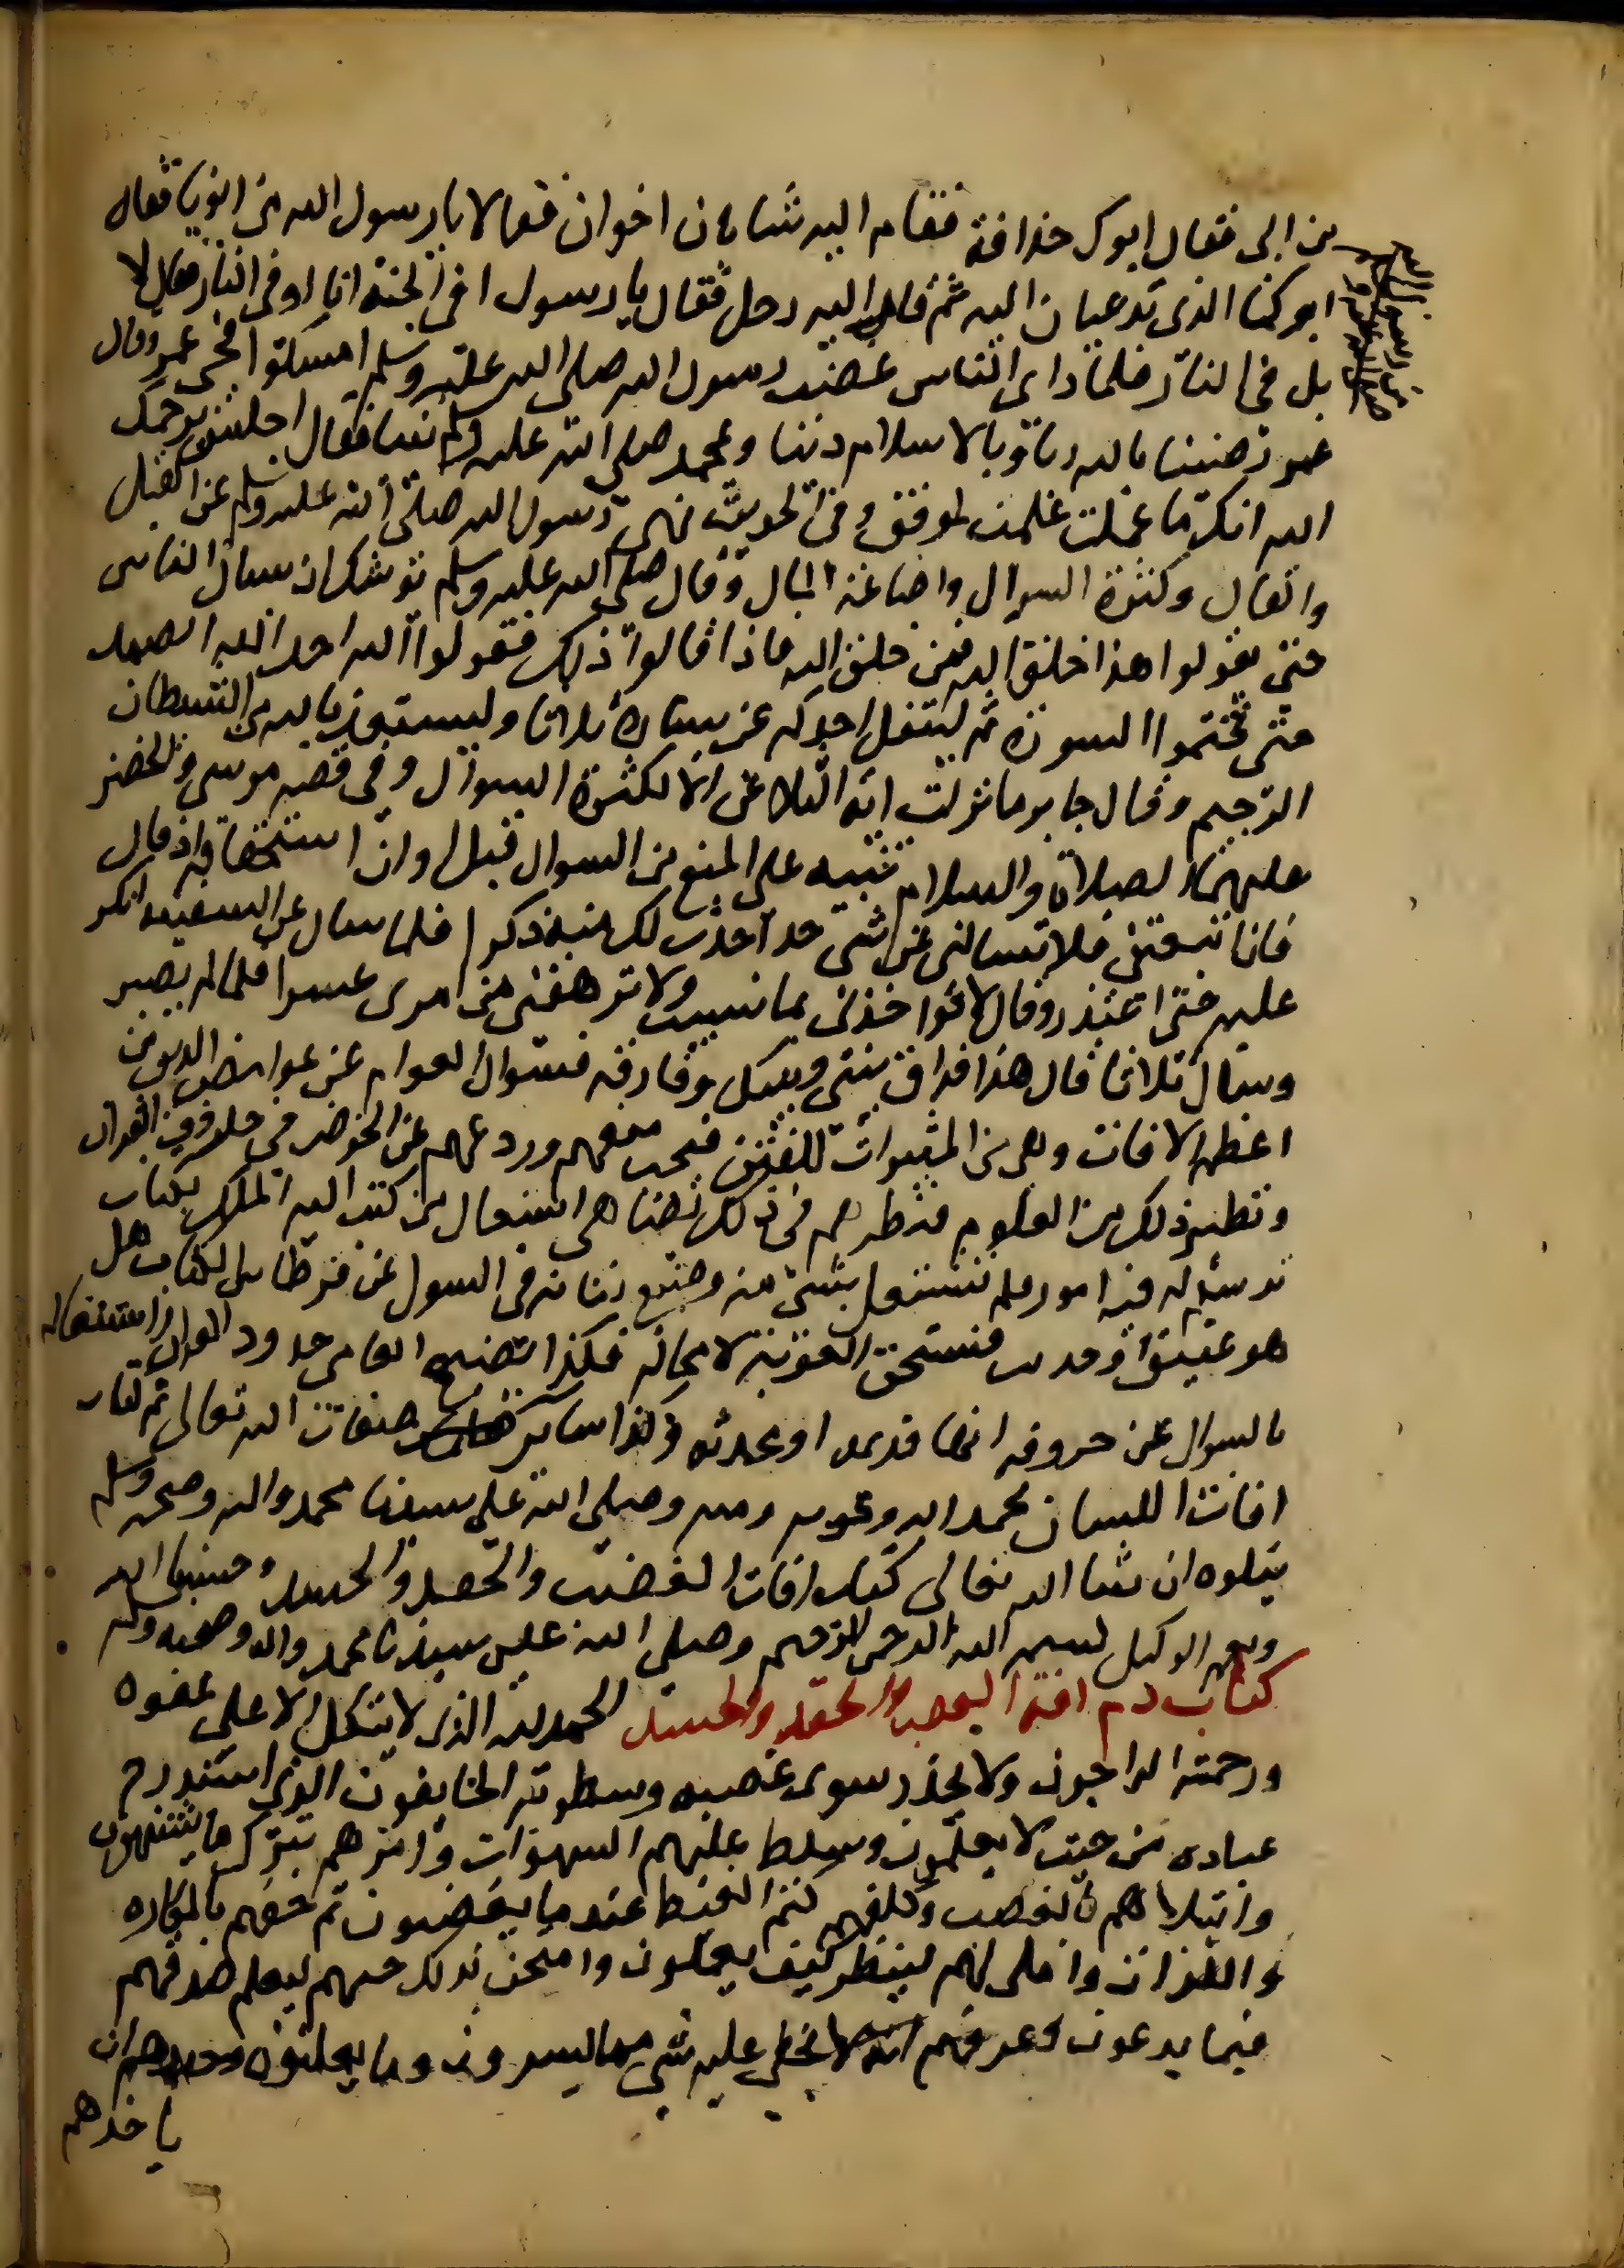 من ابى فقال ابوك حذافة فقام اليه شابان اخوان فقالا يا رسول الله من ابونا فقال
ابوكما الذى تدعيان اليه ثم قام اليه رجل فقال يا رسول افى الجنة انا او فى النار فقال لا
بل فى النار فلما راى الناس غضب رسول الله صلى الله عليه وسلم امسكوا فجى عمر وقال
عمر رضينا بالله ربا وبالاسلام دينا وبمحمد صلى الله عليه وسلم نبيا فقال اجلس يرحمك
الله انك ما علمت لموفق وفى الحديث نهى رسول الله صلى الله عليه وسلم عن القيل
والقال وكثرة السوال واضاعة المال وقال صلى الله عليه وسلم توشك ان يسال الناس
حتى يقولوا هذا خلق الله فمن خلق الله فاذا قالوا ذلك فقولوا الله احد الله الصمد
حتى تختموا السورة ثم ليتفل احدكم عن يساره ثلاثا وليستعذ بالله من الشيطان
الرجيم وقال جابر ما نزلت اية التلاعن الا لكثرة السوال وفى قصة موسى والخضر
عليهما الصلاة والسلام تنبيه على المنع من السوال قبل اوان استحقاقه اذ قال
فان اتبعتنى فلا تسالنى عن شى حتى احدث لك منه ذكرا فلما سال عن السفينة انكر
عليه حتى اعتذر وقال لا تواخذنى بما نسيت ولا ترهقنى من امرى عسرا فلما لم يصبر
وسال ثلاثا قال هذا فراق بينى وبينك وفارقه فسوال العوام عن غوامض الدين من
اعظم الافات وهى من المثيرات للفتن فيجب منعهم وردعهم عن الخوض فى حروف القران
ونظير ذلك من العلوم فنظرهم فى ذلك يضاهى اشتغال من كتب اليه الملك بكتاب
رسم له فيه امور فلم يشتغل بشى منه وضيع زمانه فى السول عن قرطاس الكتاب هل
هو عتيق او حديث فيستحق العقوبة لا محالة فكذا تضييع العامى حدود القران واشتغاله
بالسوال عن حروفه انها قديمة او محدثة وكذا ساير صفات الله تعالى تم كتاب
افات اللسان بحمد الله وعونه ومنه وصلى الله على سيدنا محمد واله وصحبه وسلم
يتلوه ان شا الله تعالى كتاب افات الغضب والحقد والحسد وحسبنا الله
ونعم الوكيل بسم الله الرحمن الرحيم وصلى الله على سيدنا محمد واله وصحبه وسلم
كتاب ذم افة الغضب والحقد والحسد الحمد لله الذى لا يتكل الا على عفوه
ورحمته الراجون ولا يحذر سوى غضبه وسطوته الخايفون الذى استدرج
عباده من حيث لا يعلمون وسلط عليهم الشهوات وامرهم بترك ما يشتهون
وابتلاهم بالغضب وكلفهم كظم الغيظ عندما يغضبون ثم حفهم بالمكاره
واللذات واملى لهم لينظر كيف يعملون وامتحن بذلك حبهم ليعلم صدقهم
فيما يدعون وعرفهم انه لا يخفى عليه شى مما يسرون وما يعلنون وحذرهم ان
ياخذهم